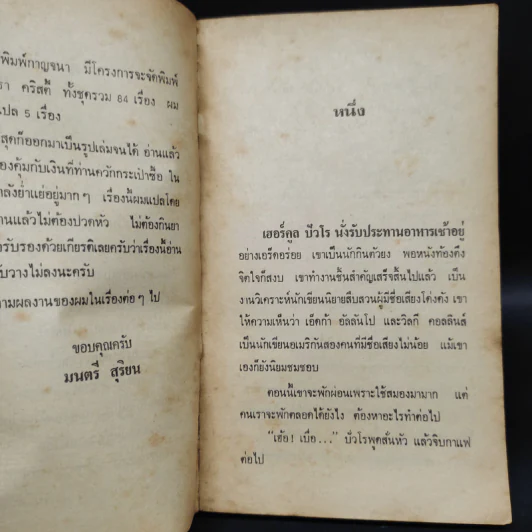 พิมพ์กาญจนา มีโครงการจะจัดพิมพ์
คริสตี้ ทั้งชุดรวม 84 เรื่อง ผม
แปล 5 เรื่อง
สุดก็ออกมาเป็นรูปเล่มจนได้ อ่านแล้ว
องคุ้มกับเงินที่ท่านควักกระเป๋าซื้อ ใน
ลังย่ำแย่อยู่มากๆ เรื่องนี้ผมแปลโดย
านแล้วไม่ต้องปวดหัว ไม่ต้องกินยา
งรับรองด้วยเกียรติเลยครับว่าเรื่องนี้อ่าน
บวางไม่ลงนะครับ
ามผลงานของผมในเรื่องต่อๆ ไป
ขอบคุณครับ
มนตรี สุริยน
หนึ่ง
เฮอร์คูล ปัวโร นั่งรับประทานอาหารเช้าอยู่
อย่างเอร็ดอร่อย เขาเป็นนักกินตัวยง พอหนังท้องตึง
จิตใจก็สงบ เขาทำงานชิ้นสำคัญเสร็จสิ้นไปแล้ว เป็น
งานวิเคราะห์นักเขียนนิยายสืบสวนผู้มีชื่อเสียงโด่งดัง เขา
ให้ความเห็นว่า เอ็ดก้า อัลลันโป และวิลกี คอลลินส์
เป็นนักเขียนอเมริกันสองคนที่มีชื่อเสียงไม่น้อย แม้เขา
เองก็ยังนิยมชมชอบ
ตอนนี้เขาจะพักผ่อนเพราะใช้สมองมามาก แต่
คนเราจะพักตลอดได้ยังไง ต้องหาอะไรทำต่อไป
“เฮ้อ! เบื่อ...” ปัวโรพูดสั่นหัว แล้วจิบกาแฟ
ต่อไป